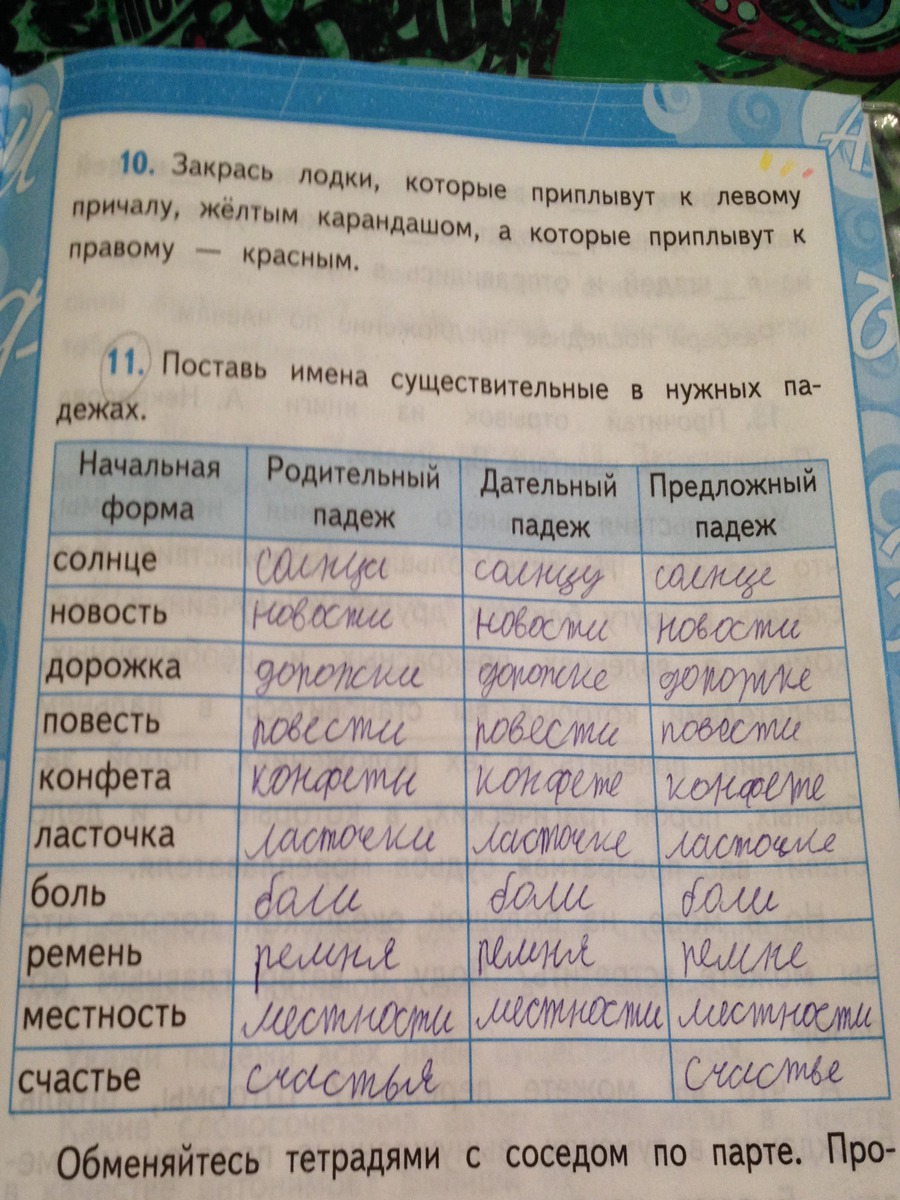 10. Закрась лодки, которые приплывут к левому
причалу, жёлтым карандашом, а которые приплывут к
правому — красным.
11. Поставь имена существительные в нужных па-
дежах.
Начальная форма Родительный падеж Дательный падеж Предложный падеж
солнце солнца солнцу солнце
новость новости новости новости
дорожка дорожки дорожке дорожке
повесть повести повести повести
конфета конфеты конфете конфете
ласточка ласточки ласточке ласточке
боль боли боли боли
ремень ремня ремня ремне
местность местности местности местности
счастье счастья счастье
Обменяйтесь тетрадями с соседом по парте. Про-